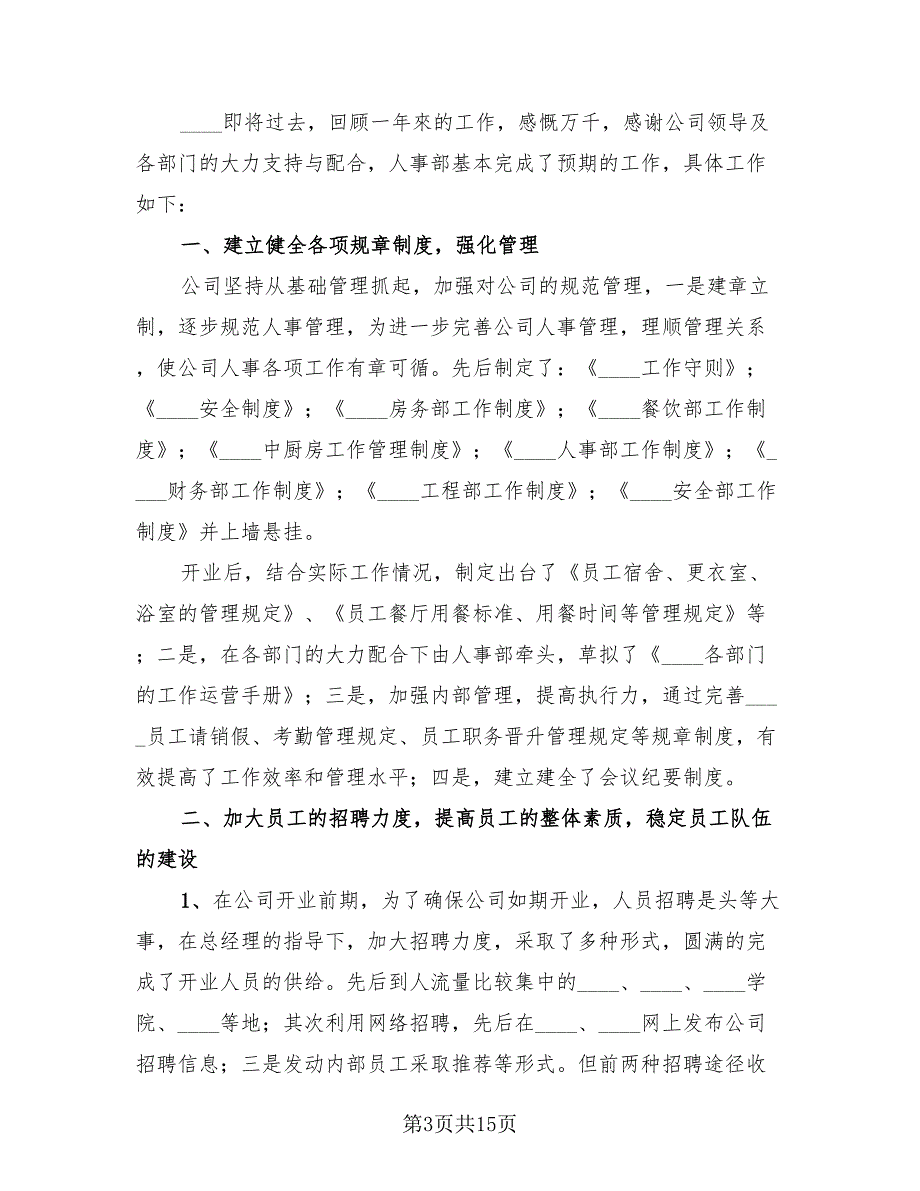 ____即将过去，回顾一年來的工作，感慨万千，感谢公司领导及
各部门的大力支持与配合，人事部基本完成了预期的工作，具体工作
如下：
一、建立健全各项规章制度，强化管理
公司坚持从基础管理抓起，加强对公司的规范管理，一是建章立
制，逐步规范人事管理，为进一步完善公司人事管理，理顺管理关系
，使公司人事各项工作有章可循。先后制定了：《____工作守则》；
《____安全制度》；《____房务部工作制度》；《____餐饮部工作制
度》；《____中厨房工作管理制度》；《____人事部工作制度》；《_
___财务部工作制度》；《____工程部工作制度》；《____安全部工作
制度》并上墙悬挂。
开业后，结合实际工作情况，制定出台了《员工宿舍、更衣室、
浴室的管理规定》、《员工餐厅用餐标准、用餐时间等管理规定》等
；二是，在各部门的大力配合下由人事部牵头，草拟了《____各部门
的工作运营手册》；三是，加强内部管理，提高执行力，通过完善___
_员工请销假、考勤管理规定、员工职务晋升管理规定等规章制度，有
效提高了工作效率和管理水平；四是，建立建全了会议纪要制度。
二、加大员工的招聘力度，提高员工的整体素质，稳定员工队伍
的建设
1、在公司开业前期，为了确保公司如期开业，人员招聘是头等大
事，在总经理的指导下，加大招聘力度，采取了多种形式，圆满的完
成了开业人员的供给。先后到人流量比较集中的____、____、____学
院、____等地；其次利用网络招聘，先后在____、____网上发布公司
招聘信息；三是发动内部员工采取推荐等形式。但前两种招聘途径收
第3页共15页